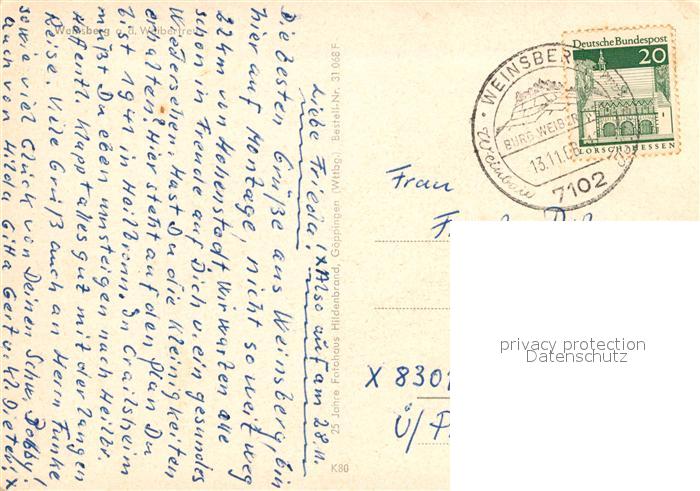 Weinsberg a. d. Weibertreu
Liebe Frieda, (x Also auf am 28.11.
Die besten Grüße aus Weinsberg, bin
hier auf Montage, nicht so weit weg
22 km von Hohenstadt wir warten alle
schon in Freude auf Dich u. ein gesundes
Wiedersehen. Hast Du die Kleinigkeiten
erhalten? Hier steht auf den Plan Du
bist 1941 in Heilbronn. In Crailsheim
mußt Du eben umsteigen nach Heilbr.
Hoffentl. klappt alles gut mit der langen
Reise. Viele Grüß auch an Herrn Funke
sowie viel Glück von Deinen Schw. Bobby,!
auch von Hilda Gitta Gert u. Kl. Dieter, x
25 Jahre Fotohaus Hildenbrand, Göppingen (Wttbg.) Bestell-Nr. 31 068 F
K80
WEINSBERG
BURG WEIB
13.11.68
7102
Deutsche Bundespost
20
LORSCH/HESSEN
Frau
X 8301
Ü/P
privacy protection
Datenschutz